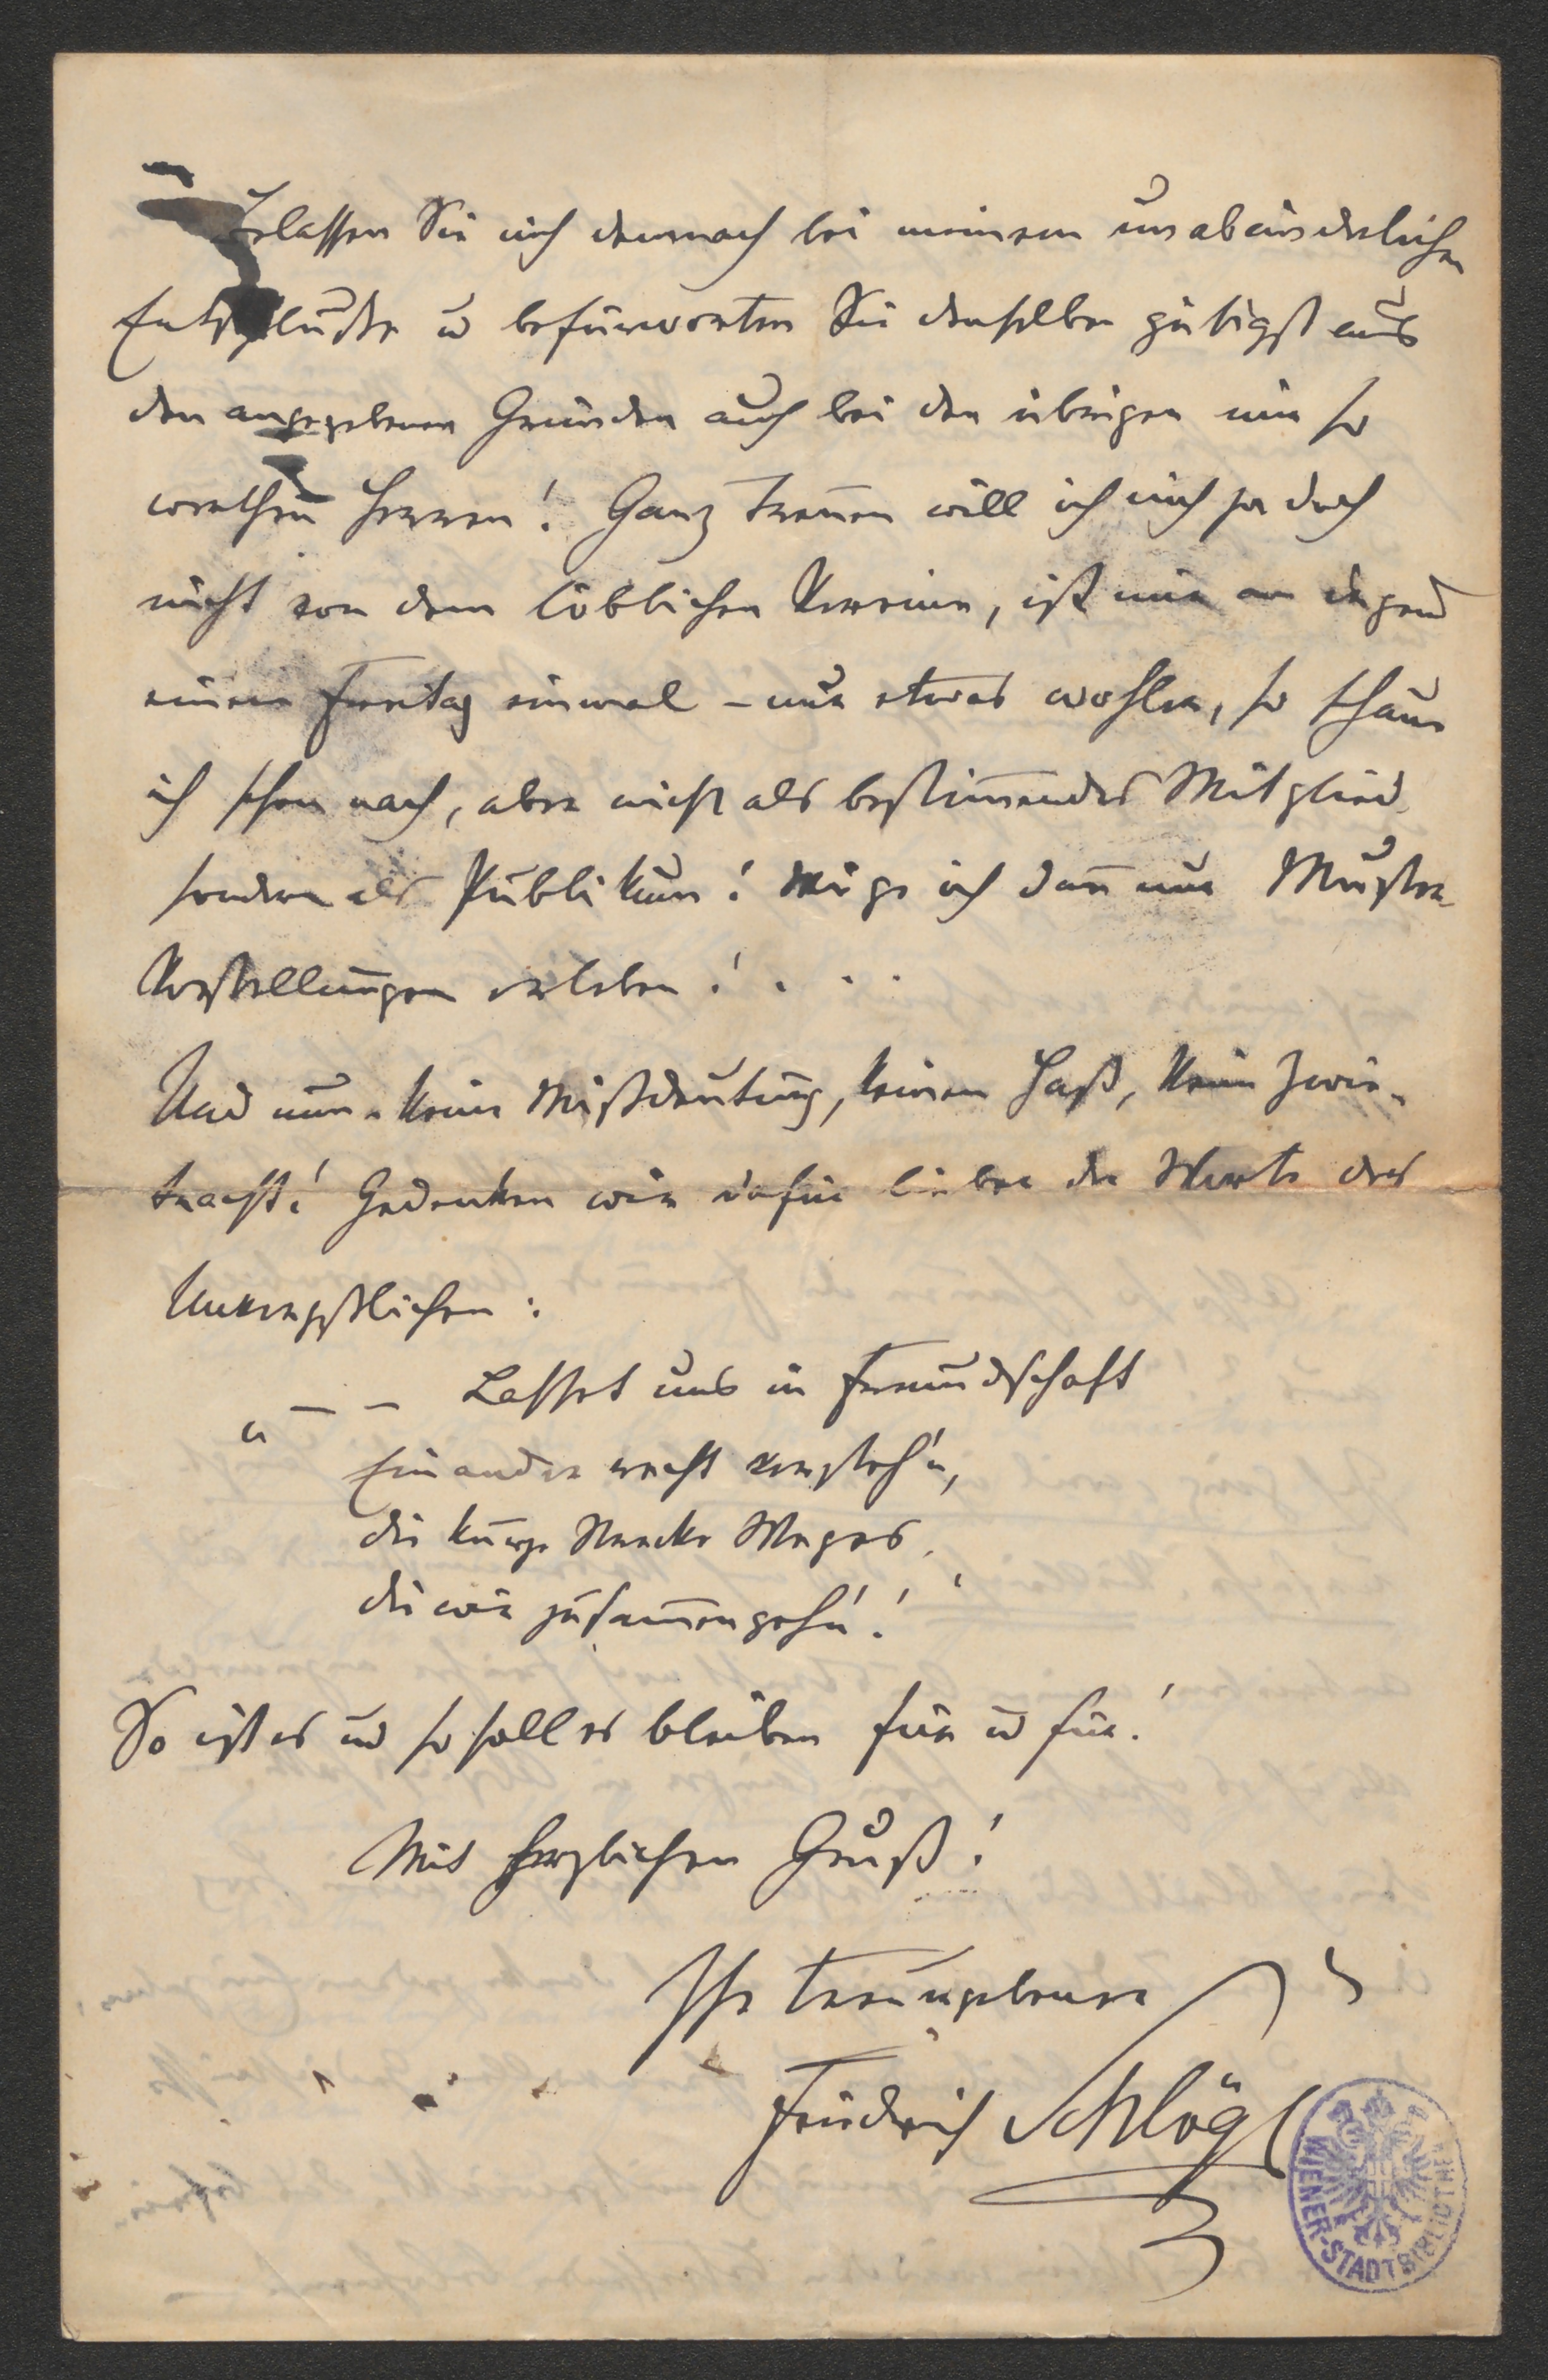 Belassen Sie mich demnach bei meinem unabänderlichen
Entschlusse u befürworten Sie denselben gütigst aus
den angegebenen Gründen auch bei den übrigen mir so
werthen Herren! Ganz trennen will ich mich ja doch
nicht von dem löblichen Vereine, ist mir an irgend
einem Freitag einmal – nur etwas wohler, so schaue
ich schon nach, aber nicht als bestimmendes Mitglied
sondern als Publikum! Möge ich dann nur Muster-
Vorstellungen erleben! . . .
Und nun – keine Mißdeutung, keinen Haß, kein Zwie-
tracht! Gedenken wir dafür lieber der Worte des
Unvergeßlichen:
" – – Lasset uns in Freundschaft
Einander recht versteh'n,
die kurze Strecke Weges,
die wir zusammengeh'n!"
So ist es und so soll es bleiben für u für!
Mit herzlichem Gruß!
Ihr treuergebener
Friedrich Schlögl
WIENER-STADTBIBLIOTHEK